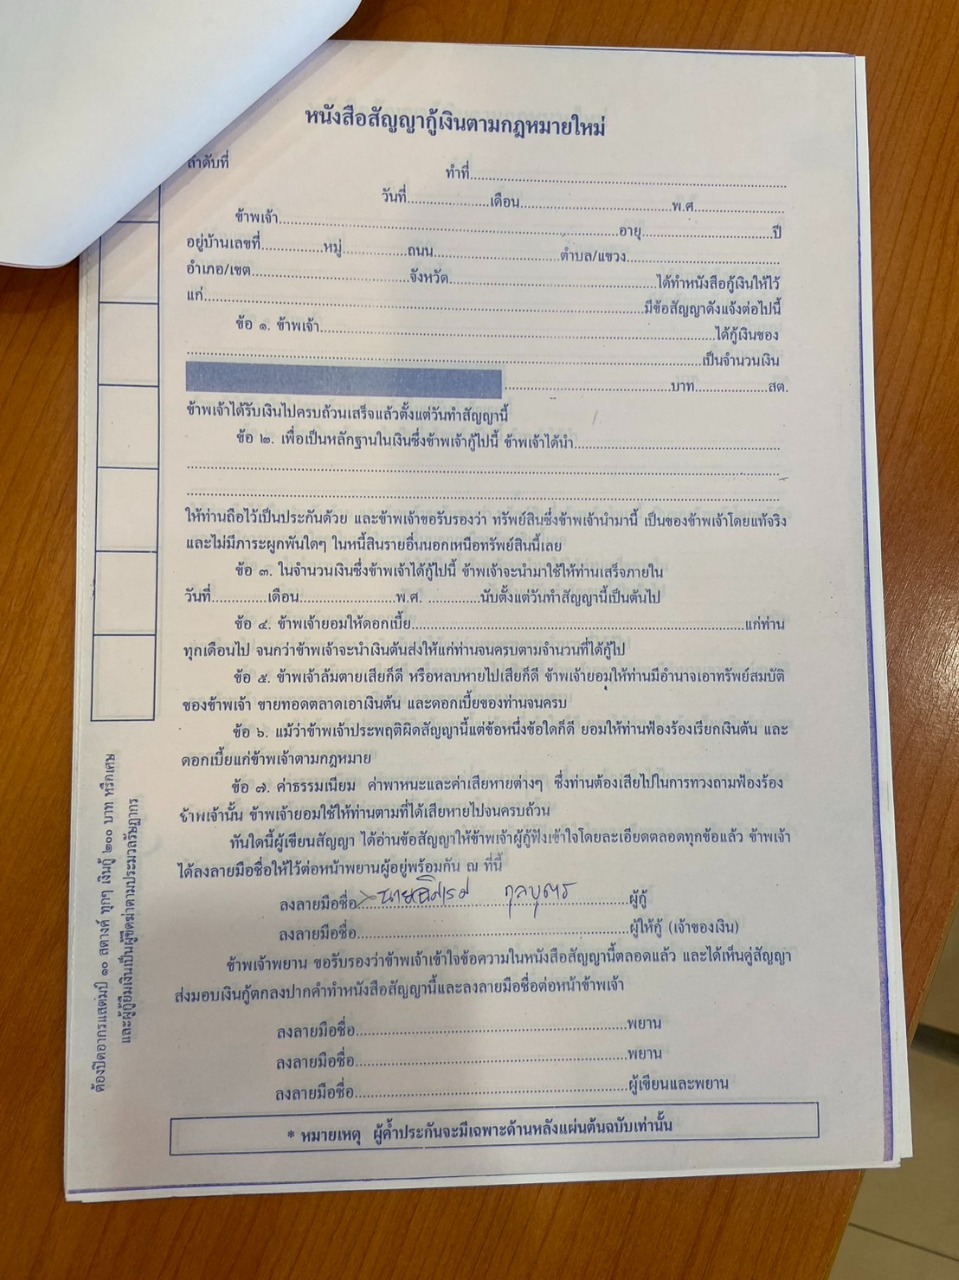 หนังสือสัญญากู้เงินตามกฎหมายใหม่
ลำดับที่
ทำที่
วันที่ เดือน พ.ศ.
ข้าพเจ้า อายุ ปี
อยู่บ้านเลขที่ หมู่ ถนน ตำบล/แขวง
อำเภอ/เขต จังหวัด ได้ทำหนังสือกู้เงินให้ไว้
แก่ มีข้อสัญญาดังแจ้งต่อไปนี้
ข้อ ๑. ข้าพเจ้า ได้กู้เงินของ
เป็นจำนวนเงิน
บาท สต.
ข้าพเจ้าได้รับเงินไปครบถ้วนเสร็จแล้วตั้งแต่วันทำสัญญานี้
ข้อ ๒. เพื่อเป็นหลักฐานในเงินซึ่งข้าพเจ้ากู้ไปนี้ ข้าพเจ้าได้นำ
ให้ท่านถือไว้เป็นประกันด้วย และข้าพเจ้าขอรับรองว่า ทรัพย์สินซึ่งข้าพเจ้านำมานี้ เป็นของข้าพเจ้าโดยแท้จริง
และไม่มีภาระผูกพันใดๆ ในหนี้สินรายอื่นนอกเหนือทรัพย์สินนี้เลย
ข้อ ๓. ในจำนวนเงินซึ่งข้าพเจ้าได้กู้ไปนี้ ข้าพเจ้าจะนำมาใช้ให้ท่านเสร็จภายใน
วันที่ เดือน พ.ศ. นับตั้งแต่วันทำสัญญานี้เป็นต้นไป
ข้อ ๔. ข้าพเจ้ายอมให้ดอกเบี้ย แก่ท่าน
ทุกเดือนไป จนกว่าข้าพเจ้าจะนำเงินต้นส่งให้แก่ท่านจนครบตามจำนวนที่ได้กู้ไป
ข้อ ๕. ข้าพเจ้าล้มตายเสียก็ดี หรือหลบหายไปเสียก็ดี ข้าพเจ้ายอมให้ท่านมีอำนาจเอาทรัพย์สมบัติ
ของข้าพเจ้า ขายทอดตลาดเอาเงินต้น และดอกเบี้ยของท่านจนครบ
ข้อ ๖. แม้ว่าข้าพเจ้าประพฤติผิดสัญญานี้แต่ข้อหนึ่งข้อใดก็ดี ยอมให้ท่านฟ้องร้องเรียกเงินต้น และ
ดอกเบี้ยแก่ข้าพเจ้าตามกฎหมาย
ข้อ ๗. ค่าธรรมเนียม ค่าพาหนะและค่าเสียหายต่างๆ ซึ่งท่านต้องเสียไปในการทวงถามฟ้องร้อง
ข้าพเจ้านั้น ข้าพเจ้ายอมใช้ให้ท่านตามที่ได้เสียหายไปจนครบถ้วน
ทันใดนี้ผู้เขียนสัญญา ได้อ่านข้อสัญญาให้ข้าพเจ้าผู้กู้ฟังเข้าใจโดยละเอียดตลอดทุกข้อแล้ว ข้าพเจ้า
ได้ลงลายมือชื่อให้ไว้ต่อหน้าพยานผู้อยู่พร้อมกัน ณ ที่นี้
ลงลายมือชื่อ ผู้กู้
ลงลายมือชื่อ ผู้ให้กู้ (เจ้าของเงิน)
ข้าพเจ้าพยาน ขอรับรองว่าข้าพเจ้าเข้าใจข้อความในหนังสือสัญญานี้ตลอดแล้ว และได้เห็นคู่สัญญา
ส่งมอบเงินกู้ตกลงปากคำทำหนังสือสัญญานี้และลงลายมือชื่อต่อหน้าข้าพเจ้า
ลงลายมือชื่อ พยาน
ลงลายมือชื่อ พยาน
ลงลายมือชื่อ ผู้เขียนและพยาน
* หมายเหตุ ผู้ค้ำประกันจะมีเฉพาะด้านหลังแผ่นต้นฉบับเท่านั้น
ต้องปิดอากรแสตมป์ ๑๐ สตางค์ ทุกๆ เงินกู้ ๒๐๐ บาท หรือเศษ
และผู้กู้ยืมเงินเป็นผู้ขีดฆ่าตามประมวลรัษฎากร